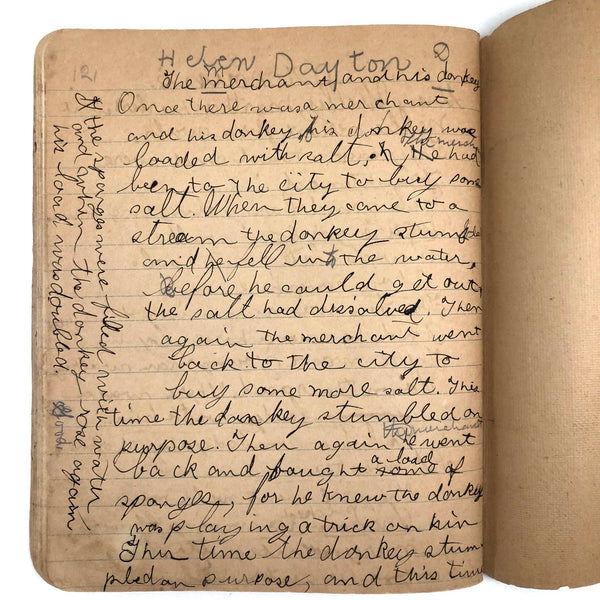 12
Helen Dayton
The merchant and his donkey
Once there was a merchant
and his donkey his donkey was
the merch
loaded with salt, He had
been to the city to buy some
salt. When they came to a
stream the donkey stumbled
and he fell into the water,
Before he could get out
the salt had dissolved. Then
again the merchant went
back to the city to
buy some more salt. This
time the donkey stumbled on
purpose. Then again he went
the merchant
back and bought some of
a load
sponges, for he knew the donkey
was playing a trick on him
This time the donkey stum-
pled on purpose, and this time
the sponges were filled with water
and when the donkey rose again
his load was doubled.